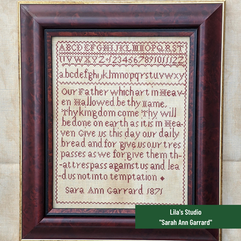 ABCDEFGHIJKLMNOPQRST
UVWXYZ
abcdefghijklmnopqrstuvwxy
Our Father which art in Heav
en Hallowed be thy name.
Thy kingdom come Thy will
be done on earth as it is in Hea-
ven Give us this day our daily
bread and for give us our tres
passes as we for give them th-
at trespass against us and lea-
d us not into temptation
Sara Ann Garrard 1871
Lila's Studio
"Sarah Ann Garrard"